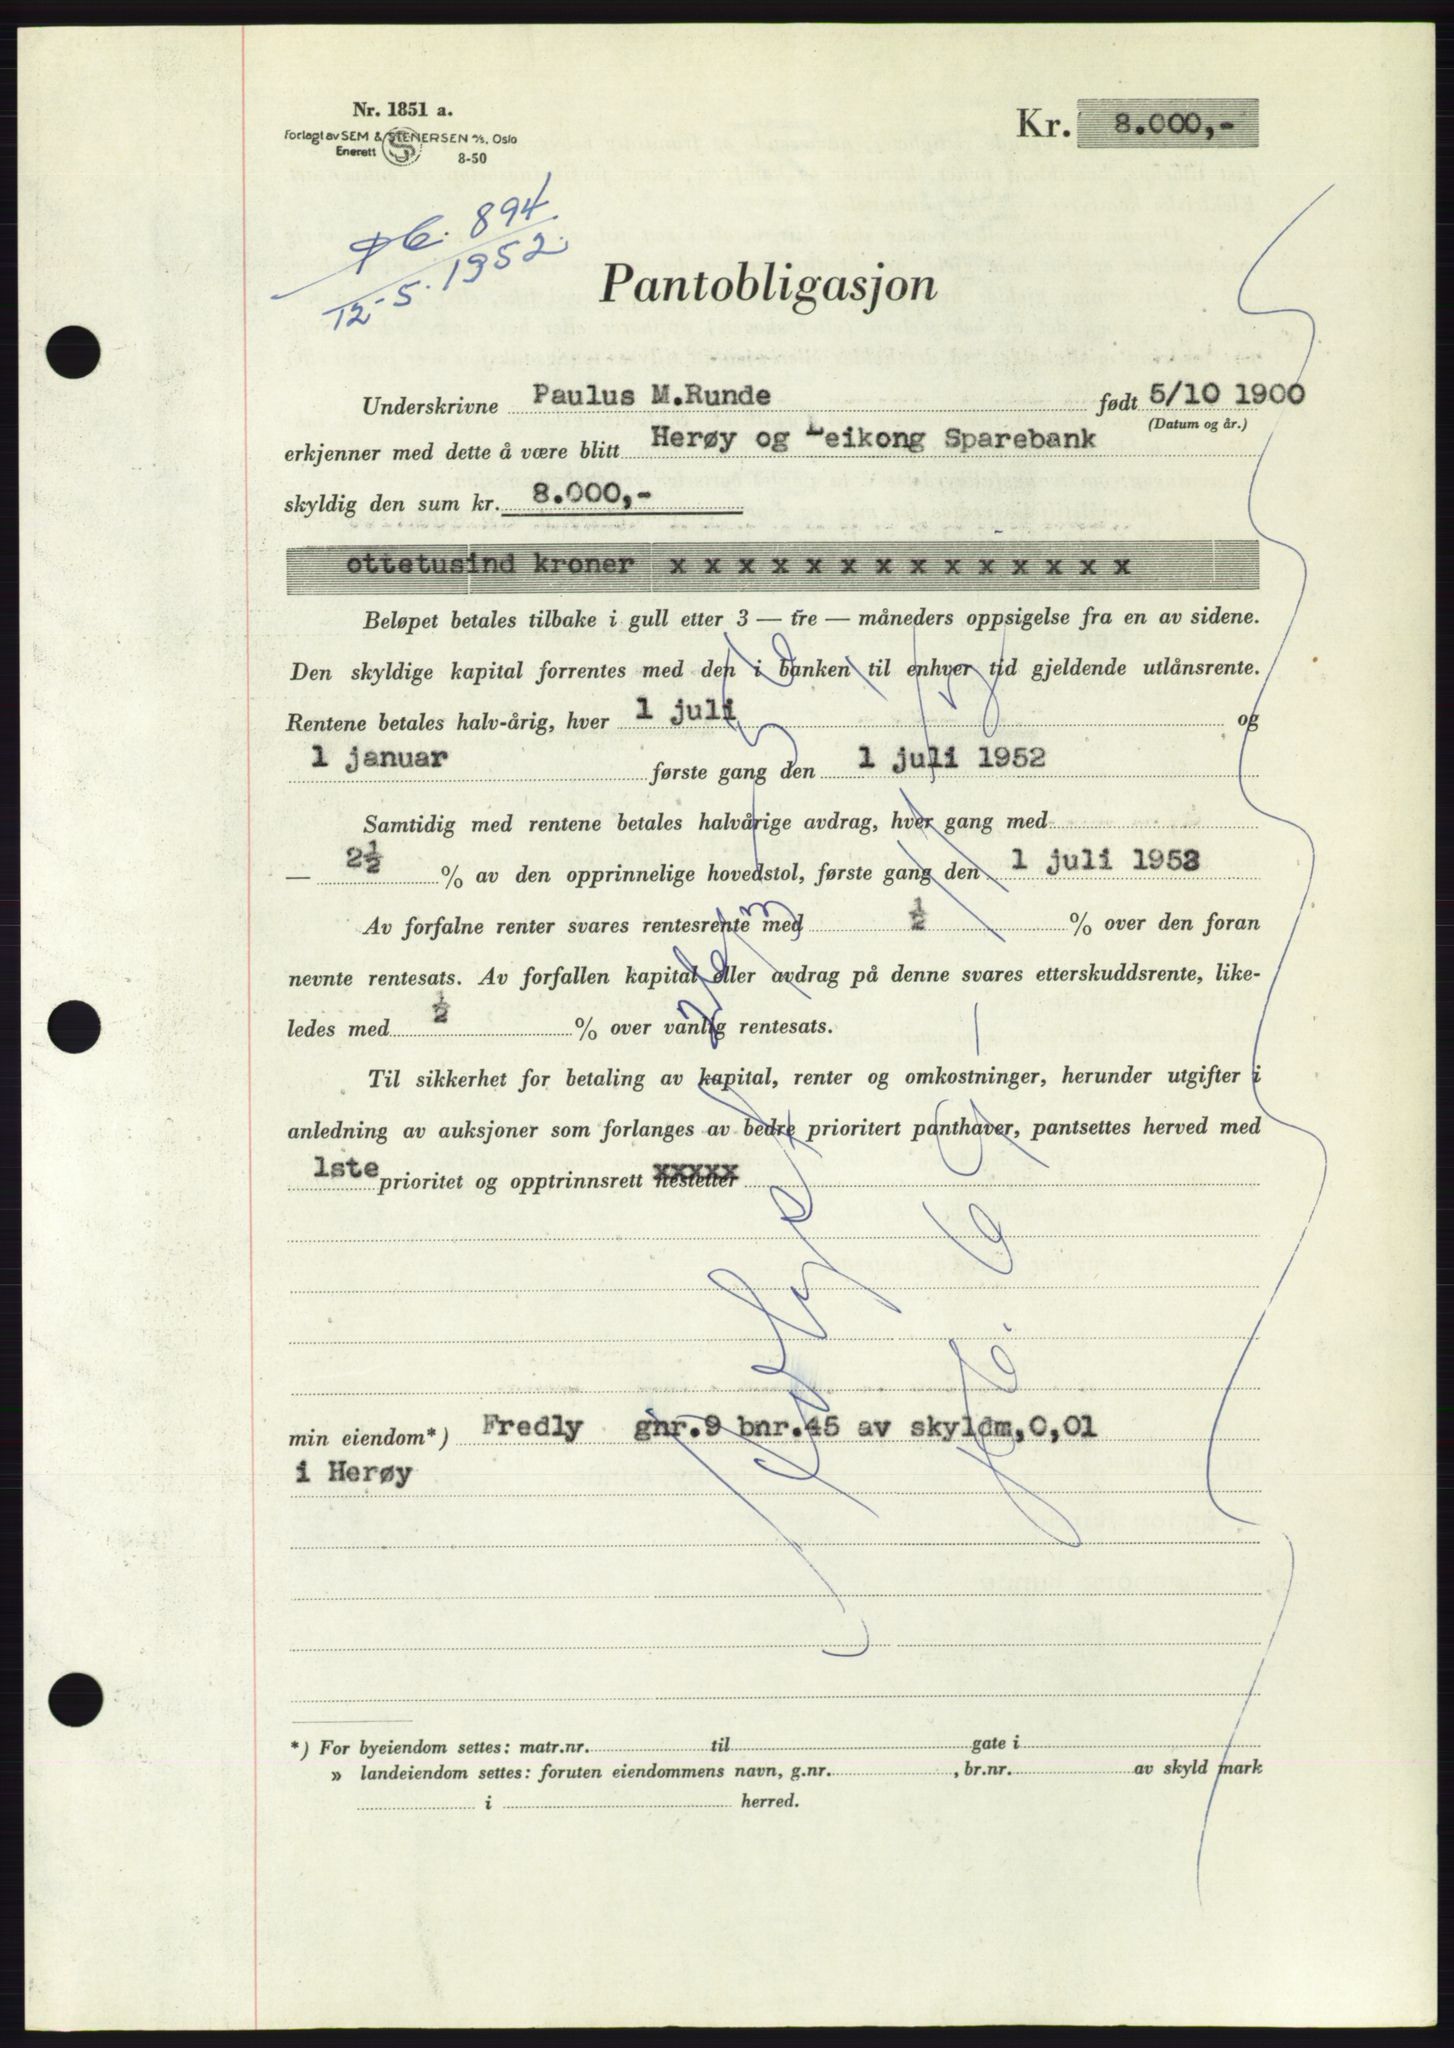 Nr. 1851 a.
Forlagt av SEM & STENERSEN A/S, Oslo
Enerett
8-50
Kr. 8.000,-
894
1952.
12-5.
Pantobligasjon
Underskrivne Paulus M.Runde født 5/10 1900
(Datum og år.)
erkjenner med dette å være blitt Herøy og Leikong Sparebank
skyldig den sum kr. 8.000,-
ottetusind kroner x x x x x x x x x x x x x x
Beløpet betales tilbake i gull etter 3 — tre — måneders oppsigelse fra en av sidene.
Den skyldige kapital forrentes med den i banken til enhver tid gjeldende utlånsrente.
Rentene betales halv-årig, hver 1 juli og
1 januar første gang den 1 juli 1952
Samtidig med rentene betales halvårige avdrag, hver gang med
— 2½ % av den opprinnelige hovedstol, første gang den 1 juli 1953
Av forfalne renter svares rentesrente med ½ % over den foran
nevnte rentesats. Av forfallen kapital eller avdrag på denne svares etterskuddsrente, like-
ledes med ½ % over vanlig rentesats.
Til sikkerhet for betaling av kapital, renter og omkostninger, herunder utgifter i
anledning av auksjoner som forlanges av bedre prioritert panthaver, pantsettes herved med
1ste prioritet og opptrinnsrett nestetter
min eiendom*) Fredly gnr.9 bnr.45 av skyldm,0,01
i Herøy
*) For byeiendom settes: matr.nr. til gate i
» landeiendom settes: foruten eiendommens navn, g.nr. , br.nr. av skyld mark
i herred.